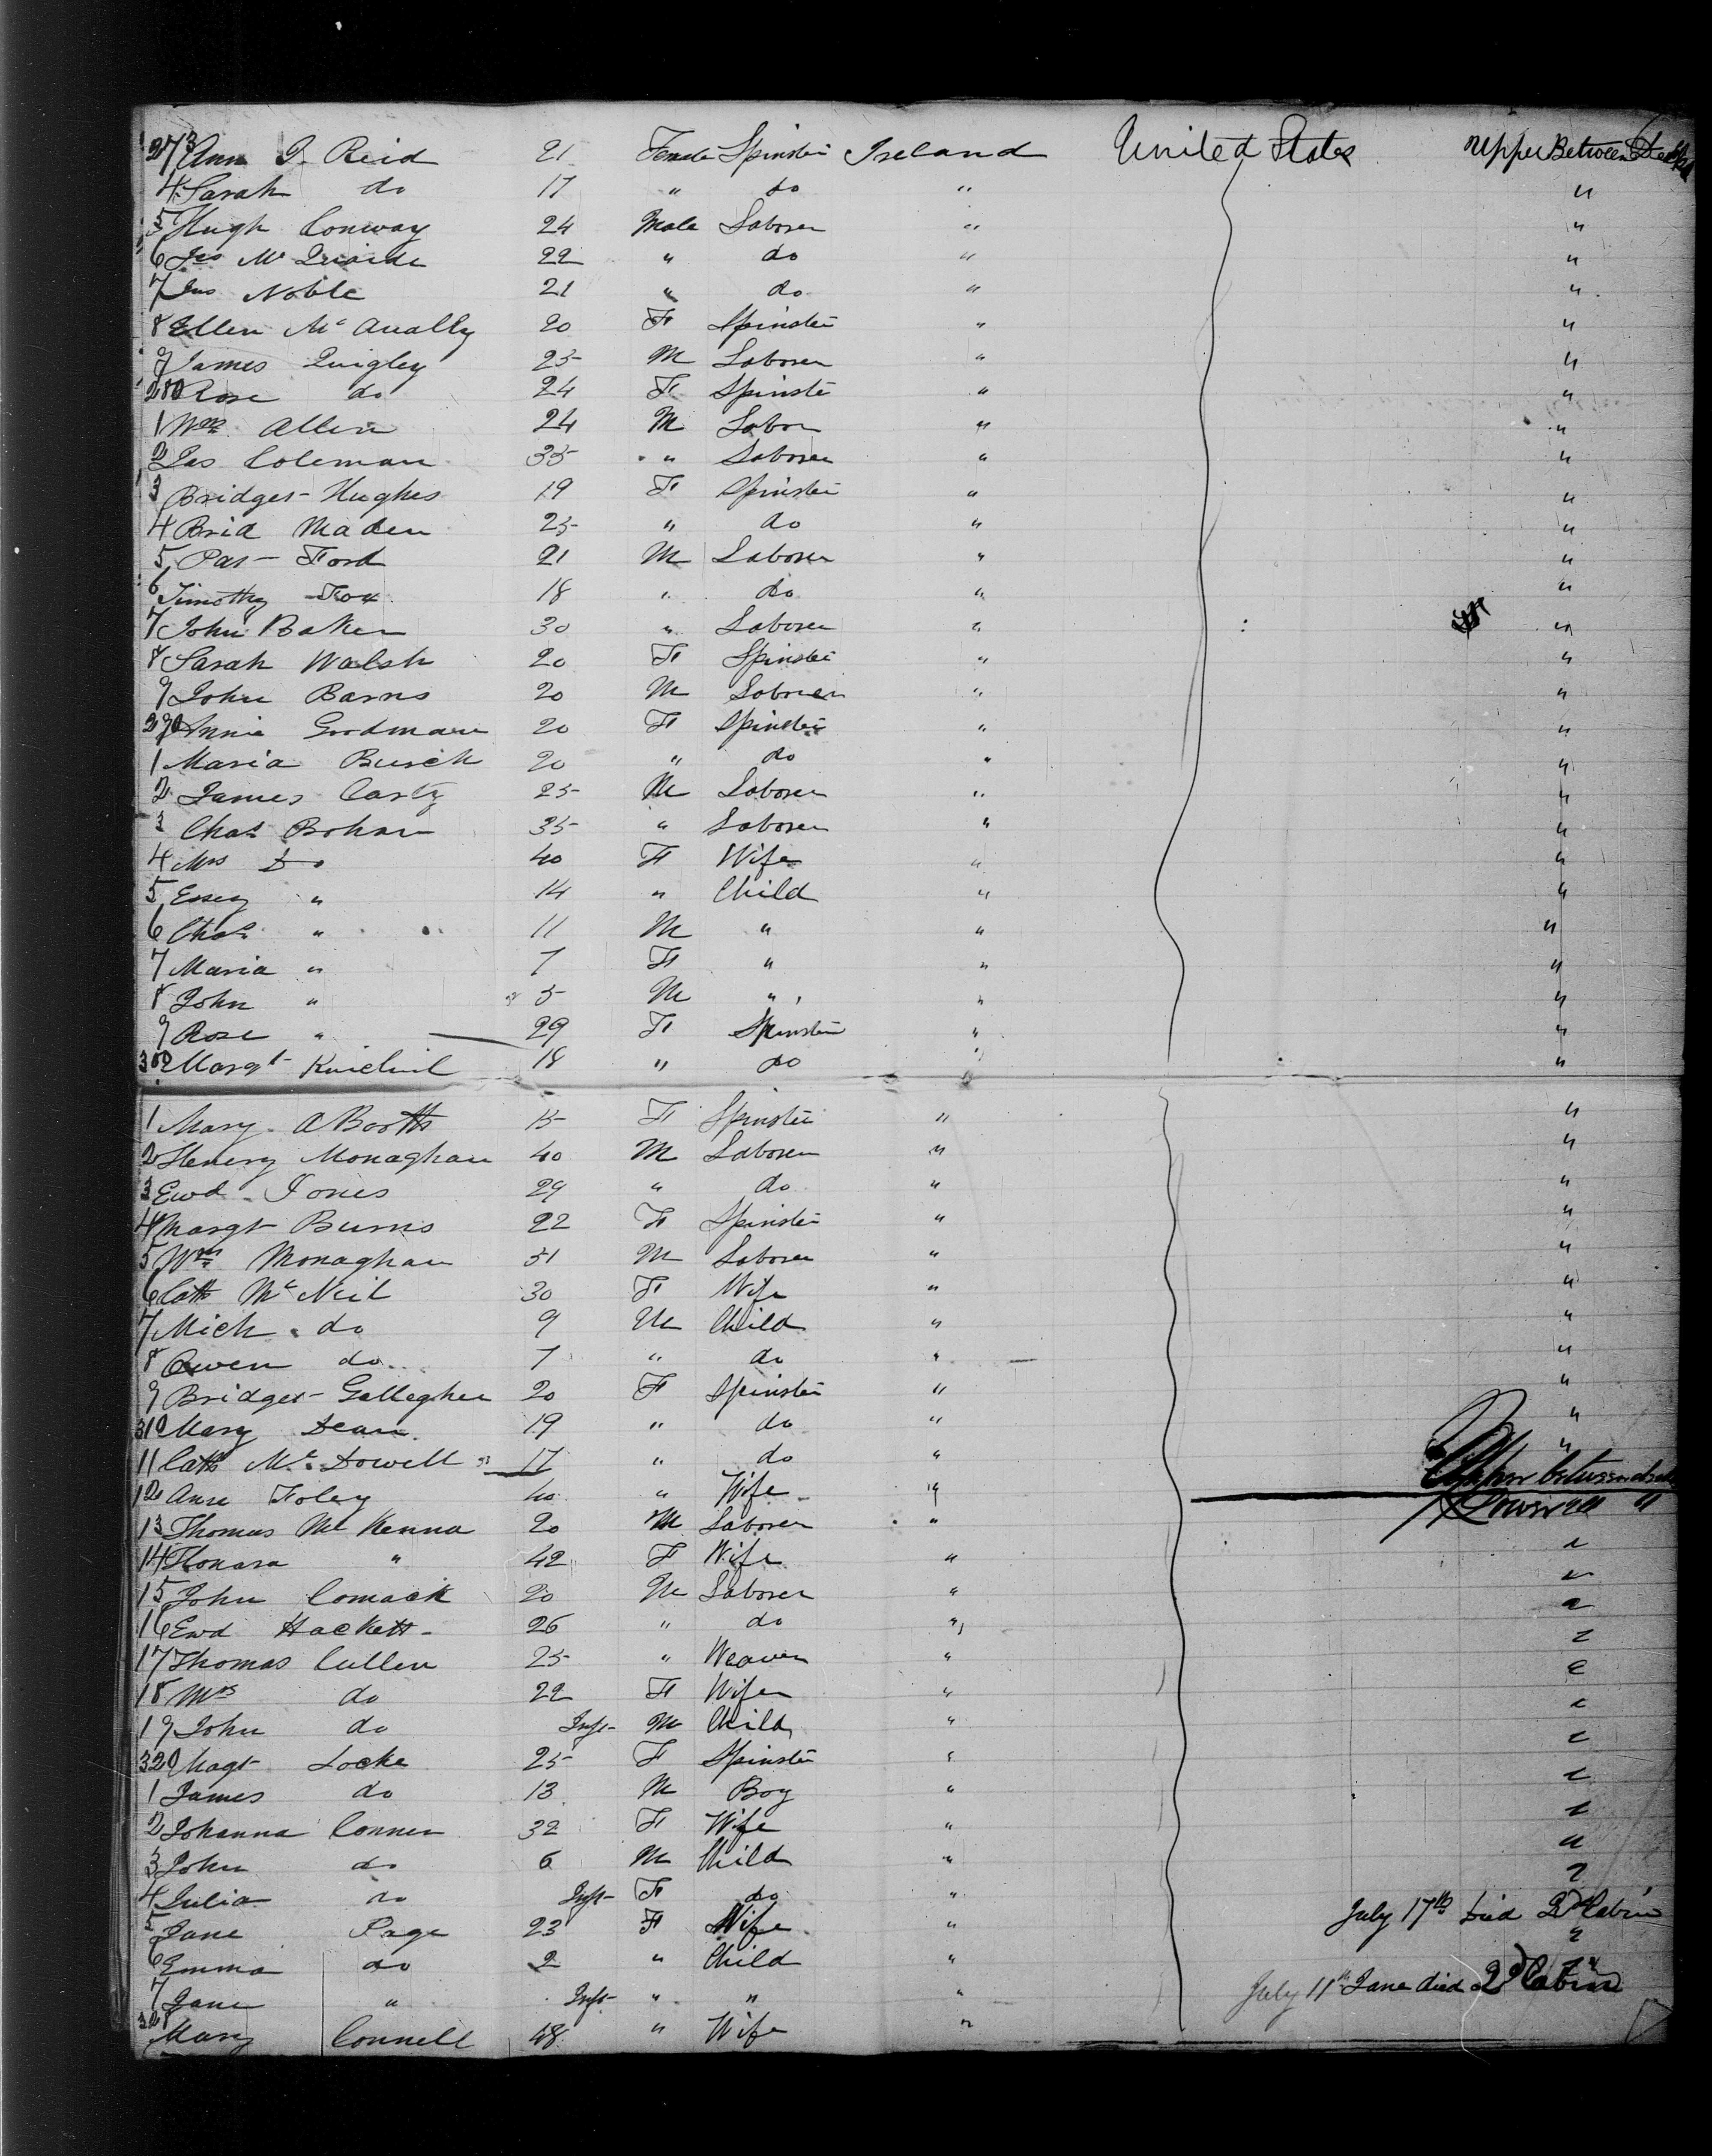 273 Ann J. Reid 21 Female Spinster Ireland United States Upper Between Decks
4 Sarah do 17 " do " "
5 Hugh Conway 24 Male Laborer " "
6 Jas Mc 22 " do " "
7 Jno Noble 21 " do " "
8 Ellen Mc Anally 20 F Spinster " "
9 James Quigley 25 M Laborer " "
280 Rose do 24 F Spinster " "
1 Wm Allen 24 M Labor " "
2 Jas Coleman 35 " Laborer " "
3 Bridget Hughes 19 F Spinster " "
4 Brid Maden 25 " do " "
5 Pat Ford 21 M Laborer " "
6 Timothy Fox 18 " do " "
7 John Baker 30 " Laborer " "
8 Sarah Walsh 20 F Spinster " "
9 John Barns 20 M Laborer " "
290 Annie Goodman 20 F Spinster " "
1 Maria Burch 20 " do " "
2 James Carty 25 M Laborer " "
3 Chas Bohan 35 " Laborer " "
4 Mrs Do 40 F Wife " "
5 Essey " 14 " Child " "
6 Chas " 11 M " " "
7 Maria " 7 F " " "
8 John " 5 M " " "
9 Rose " 29 F Spinster " "
300 Margt 18 " do " "
1 Mary A Booth 15 F Spinster " "
2 Henery Monaghan 40 M Laborer " "
3 Ewd Jones 29 " do " "
4 Margt Burns 22 F Spinster " "
5 Wm Monaghan 31 M Laborer " "
6 Cath Mc Neil 30 F Wife " "
7 Mich do 9 M Child " "
8 Owen do 7 " do " "
9 Bridget Gallegher 20 F Spinster " "
310 Mary Dean 19 " do " "
11 Cath Mc Dowell 17 " do " "
Upper between decks
12 Anne Foley 40 " Wife " Lower "
13 Thomas Mc Kenna 20 M Laborer "
14 Honara " 42 F Wife " "
15 John Comack 20 M Laborer " "
16 Ewd Hackett 26 " do " "
17 Thomas Cullen 25 " Weaver " "
18 Mrs do 22 F Wife " "
19 John do Inft M Child " "
320 Magt Locke 25 F Spinster " "
1 James do 13 M Boy " "
2 Johanna Conner 32 F Wife " "
3 John do 6 M Child " "
4 Julia do Inft F do " "
5 Jane Page 23 F Wife " July 17th Died 2d Cabin
6 Emma do 2 " Child " "
7 Jane " Inft " " " July 11th Jane died 2d Cabin
328 Mary Connell 48 " Wife "